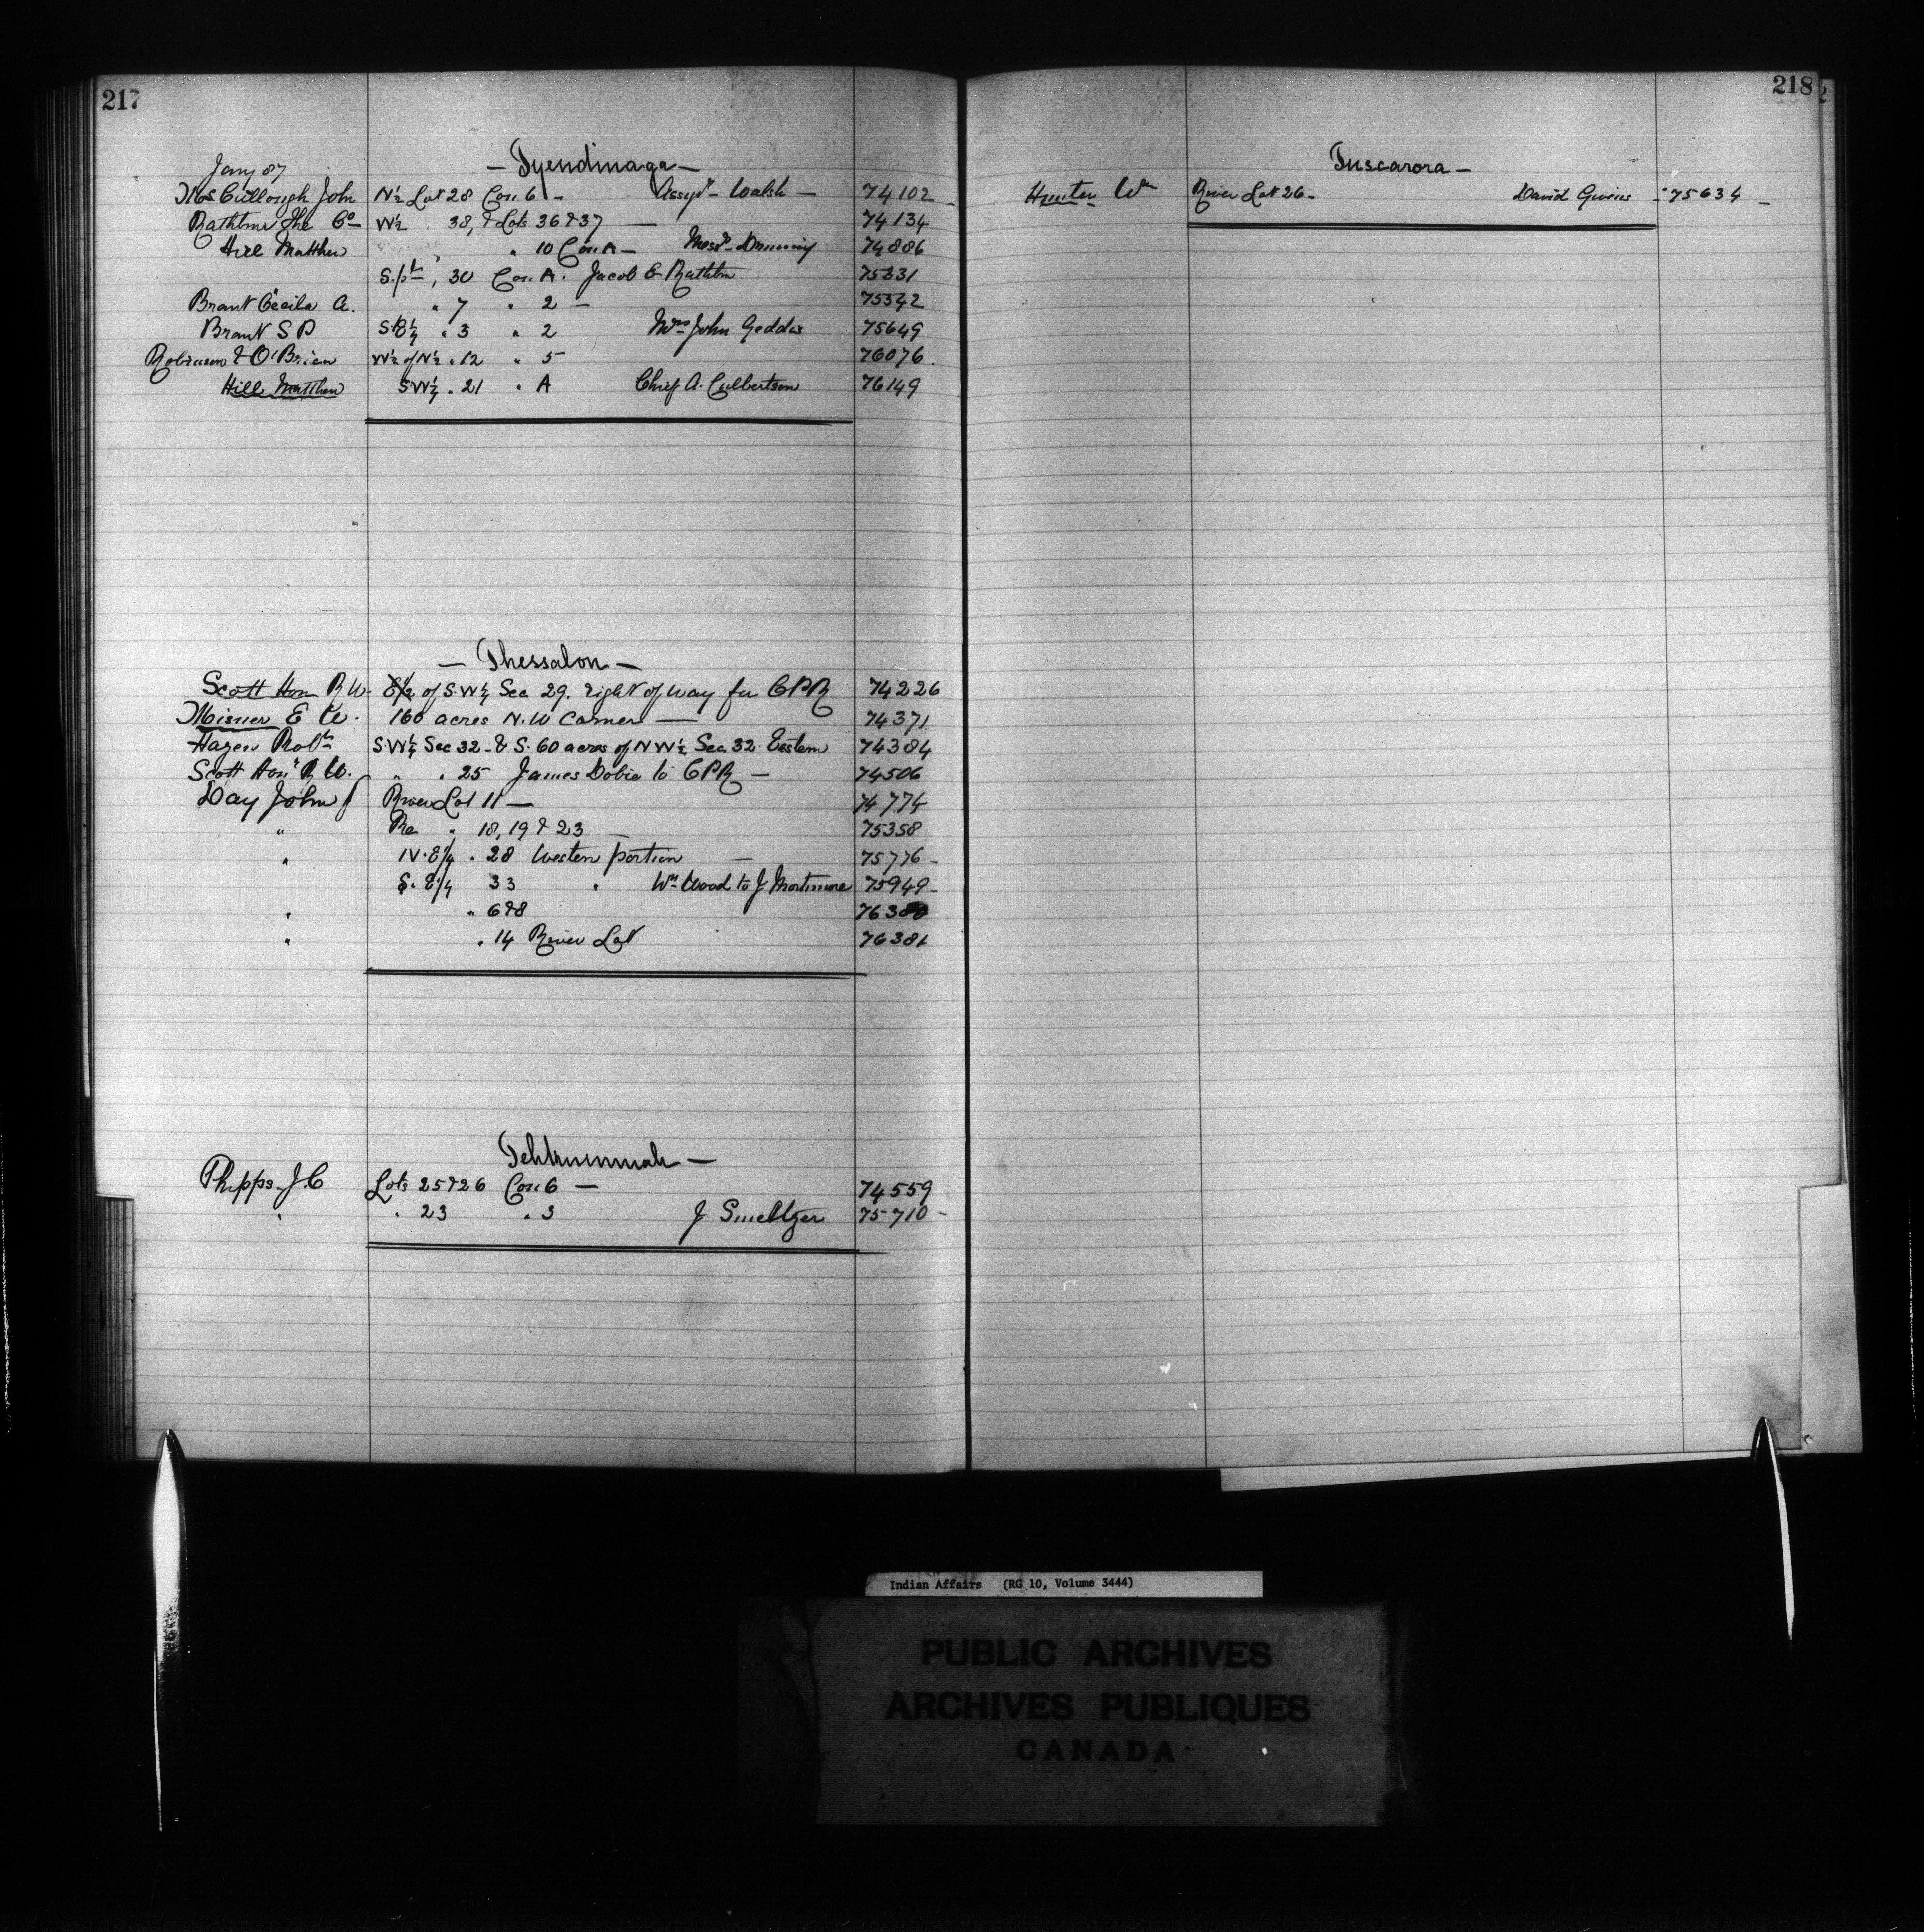 217
Jany 87
— Tyendinaga —
McCullough John N½ Lot 28 Con 6 - Assyt - Walsh — 74102
Rathbun The Co W½ . 38, & Lots 36 & 37 — 74134
Hill Matthew " " 10 Con A — 74886
S. pt , 30 Con. A. Jacob B Rathbun 75331
Brant Cecila A. " 7 " 2 — 75342
Brant S P S.E¼ " 3 " 2 Mrs John Geddes 75649
Robinson & O'Brien W½ of N½ . 12 " 5 76076
Hill Matthew S.W¼ . 21 " A Chief A. Culbertson 76149
— Thessalon —
Scott Hon R W. E½ of S.W¼ Sec 29. right of way for CPR 74226
Misner E W. 160 acres N.W Corner — 74371
Hagen Robt S.W¼ Sec 32 - & S. 60 acres of N W½ Sec 32 Eastern 74384
Scott Hon. R W. " . 25 James Dobie to CPR — 74506
Day John J River Lot 11 — 74774
" Re " 18, 19 & 23 — 75358
" N.E¼ . 28 Western portion — 75776 -
S. E¼ 33 " Wm Wood to J Mortimore 75949 -
" " 6 & 8 7638
" . 14 River Lot 76381
Tehkummah —
Phipps J. C Lots 25 & 26 Con 6 — 74559
" " 23 " 3 J Smeltzer 75710 -
218
Tuscarora —
Hunter Wm River Lot 26 - David Givens - 75634 -
Indian Affairs (RG 10, Volume 3444)
PUBLIC ARCHIVES
ARCHIVES PUBLIQUES
CANADA